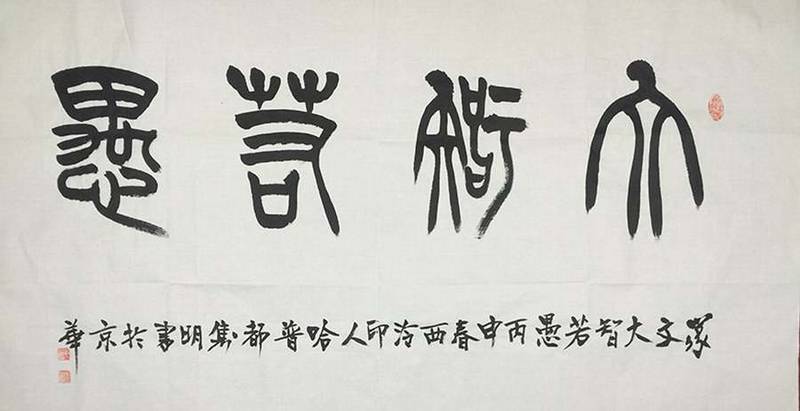 大智若愚
篆文大智若愚丙申春西泠印人哈普都隽明书於京華